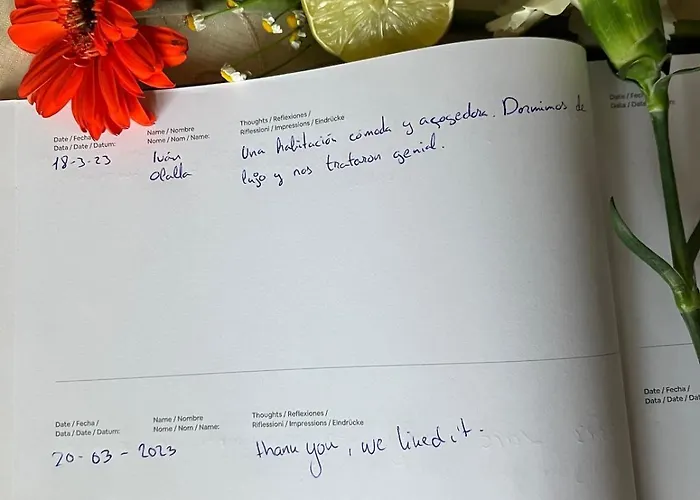 Date / Fecha
Data / Date / Datum:
18-3-23
Name / Nombre
Nome / Nom / Name:
Iván
Olalla
Thoughts / Reflexiones /
Riflessioni / Impressions / Eindrücke
Una habitación cómoda y acogedora. Dormimos de
lujo y nos trataron genial.
Date / Fecha /
Data / Date / Datum:
20-03-2023
Name / Nombre
Nome / Nom / Name:
Thoughts / Reflexiones /
Riflessioni / Impressions / Eindrücke
thank you, we liked it.
Date / Fech
Data / Da
Date / Fecha /
Data / Date / Dat